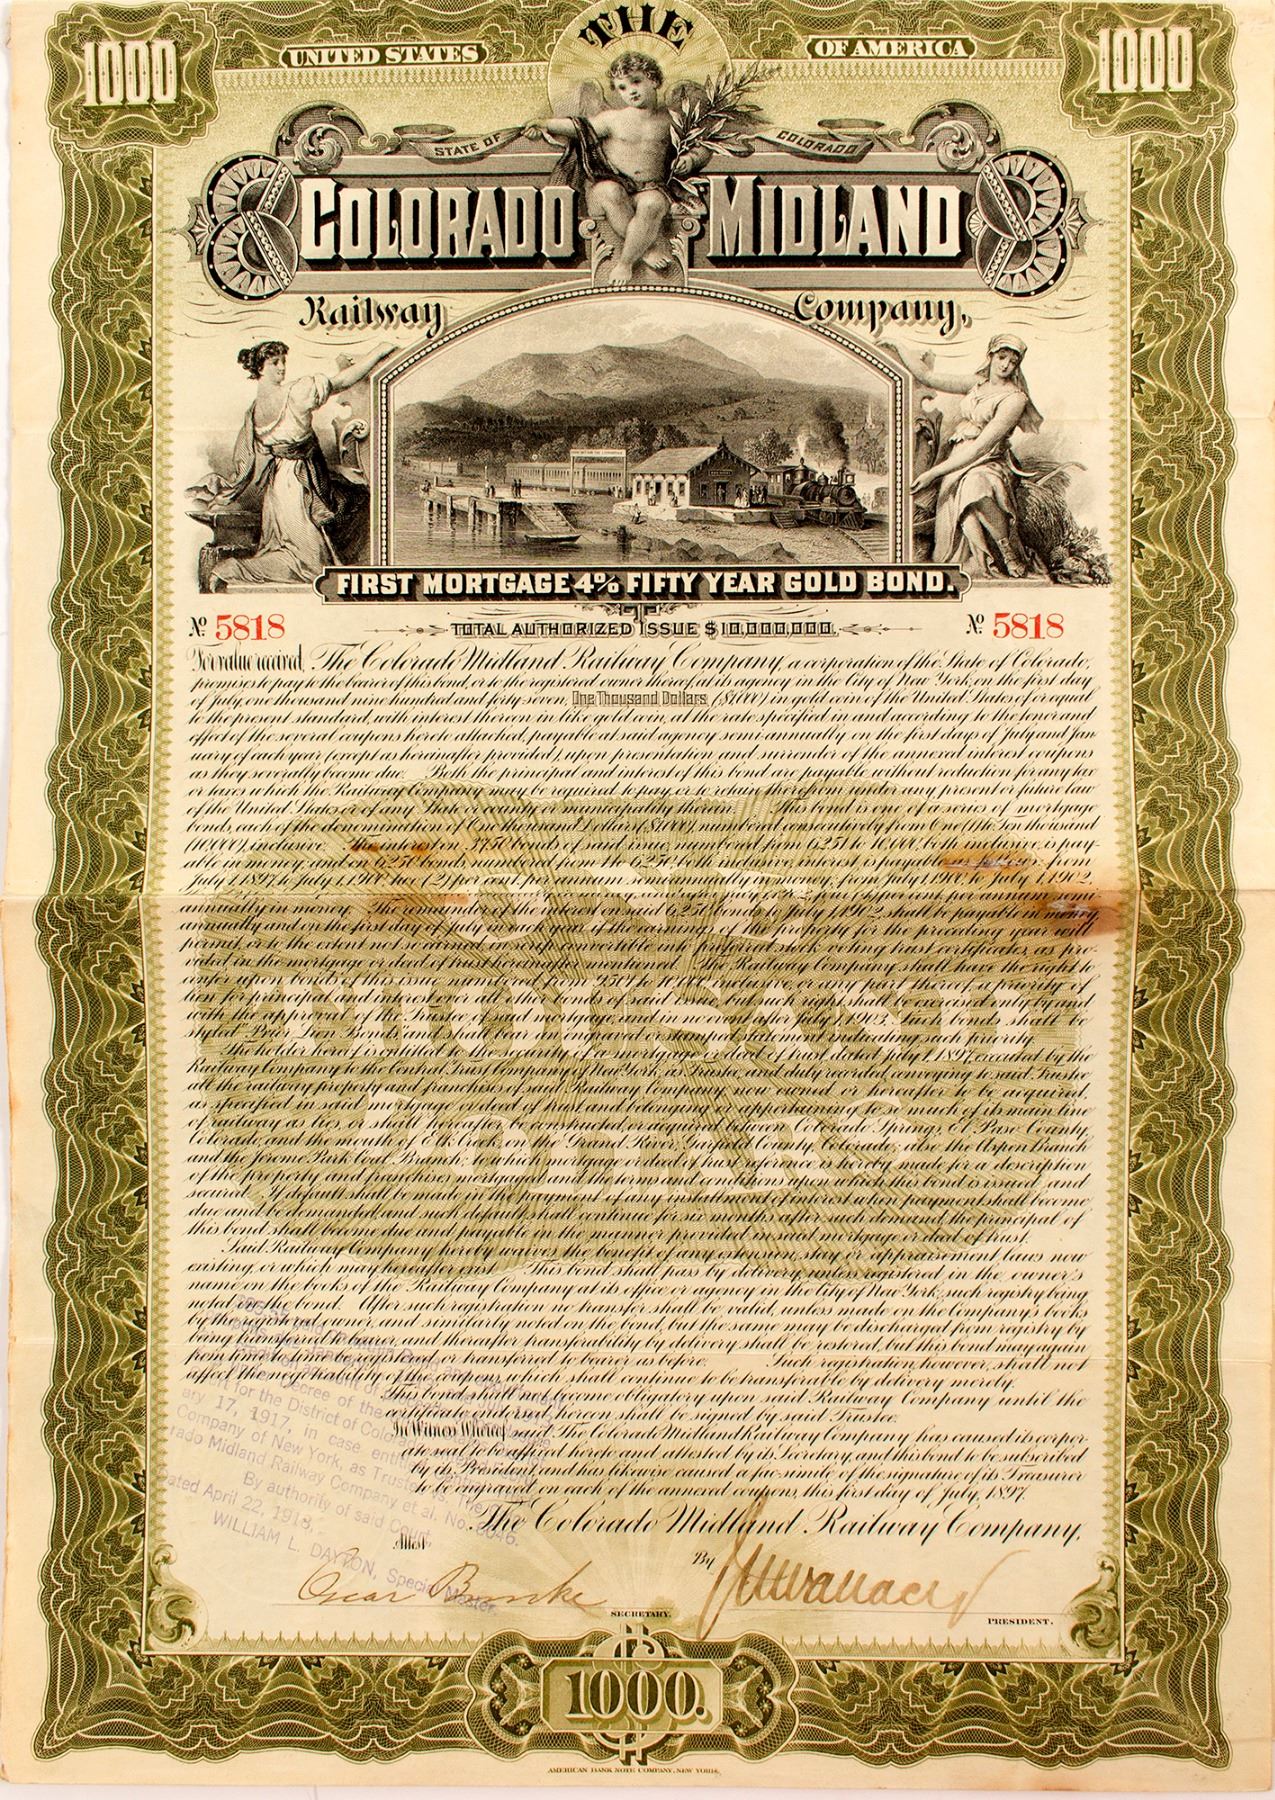 THE
1000
UNITED STATES
OF AMERICA
1000
STATE OF
COLORADO
COLORADO MIDLAND
Railway Company,
FIRST MORTGAGE 4% FIFTY YEAR GOLD BOND.
No 5818
TOTAL AUTHORIZED ISSUE $10,000,000.
No 5818
For value received, The Colorado Midland Railway Company, a corporation of the State of Colorado,
promises to pay to the bearer of this bond, or to the registered owner thereof, at its agency in the City of New York, on the first day
of July, one thousand nine hundred and forty-seven, One Thousand Dollars ($1,000) in gold coin of the United States of or equal
to the present standard, with interest thereon in like gold coin, at the rate specified in and according to the tenor and
effect of the several coupons hereto attached, payable at said agency semi-annually on the first days of July and Jan
uary of each year (except as hereinafter provided), upon presentation and surrender of the annexed interest coupons
as they severally become due. Both the principal and interest of this bond are payable without reduction for any tax
or taxes which the Railway Company may be required to pay, or to retain therefrom under any present or future law
of the United States or of any State or county or municipality therein. This bond is one of a series of mortgage
bonds, each of the denomination of One thousand Dollars ($1,000), numbered consecutively from One (1) to Ten thousand
(10,000), inclusive. The interest on 3,750 bonds of said issue, numbered from 6,251 to 10,000, both inclusive, is pay-
able in money; and on 6,250 bonds numbered from 1 to 6,250 both inclusive, interest is payable as follows: from
July 1, 1897, to July 1, 1900, two (2) per cent. per annum semi-annually in money; from July 1, 1900, to July 1, 1902,
per cent. per annum semi-
annually in money. The remainder of the interest on said 6,250 bonds to July 1, 1902, shall be payable in money,
annually and on the first day of July in each year if the earnings of the property for the preceding year will
permit, or to the extent not so earned, in scrip convertible into preferred stock voting trust certificates, as pro-
vided in the mortgage or deed of trust hereinafter mentioned. The Railway Company shall have the right to
confer upon bonds of this issue numbered from 9,501 to 10,000 inclusive, or any part thereof, a priority of
lien for principal and interest over all other bonds of said issue, but such right shall be exercised only by and
with the approval of the Trustee of said mortgage, and in no event after July 1, 1903. Such bonds shall be
styled "Prior Lien Bonds" and shall bear an engraved or stamped statement indicating such priority.
The holder hereof is entitled to the security of a mortgage or deed of trust dated July 1, 1897, executed by the
Railway Company to the Central Trust Company of New York, as Trustee, and duly recorded, conveying to said Trustee
all the railway property and franchises of said Railway Company now owned or hereafter to be acquired,
as specified in said mortgage or deed of trust and belonging or appertaining to so much of its main line
of railway as lies, or shall hereafter be constructed or acquired between Colorado Springs, El Paso County,
Colorado, and the mouth of Elk Creek, on the Grand River, Garfield County, Colorado; also the Aspen Branch
and the Jerome Park Coal Branch; to which mortgage or deed of trust reference is hereby made for a description
of the property and franchises mortgaged and the terms and conditions upon which this bond is issued and
secured. If default shall be made in the payment of any installment of interest when payment shall become
due and be demanded, and such default shall continue for six months after such demand, the principal of
this bond shall become due and payable in the manner provided in said mortgage or deed of trust.
Said Railway Company hereby waives the benefit of any extension, stay or appraisement laws now
existing, or which may hereafter exist. This bond shall pass by delivery, unless registered in the owner's
name on the books of the Railway Company at its office or agency in the City of New York; such registry being
noted on the bond. After such registration no transfer shall be valid, unless made on the Company's books
by the registered owner, and similarly noted on the bond, but the same may be discharged from registry by
being transferred to bearer, and thereafter transferability by delivery shall be restored, but this bond may again
from time to time be registered or transferred to bearer as before. Such registration, however, shall not
affect the negotiability of the coupons, which shall continue to be transferable by delivery merely.
This bond shall not become obligatory upon said Railway Company until the
certificate endorsed hereon shall be signed by said Trustee.
In Witness Whereof, said The Colorado Midland Railway Company has caused its corpor-
ate seal to be affixed hereto and attested by its Secretary, and this bond to be subscribed
by its President, and has likewise caused a fac-simile of the signature of its Treasurer
to be engraved on each of the annexed coupons, this first day of July, 1897.
Decree of the
for the District of Colorado
17, 1917, in case entitled
Company of New York, as Trustee, vs. The
rado Midland Railway Company et al. No.
By authority of said Court,
ated April 22, 1918.
WILLIAM L. DAYTON, Special Master
The Colorado Midland Railway Company,
Attest,
By
SECRETARY.
PRESIDENT.
1000.
AMERICAN BANK NOTE COMPANY, NEW YORK.